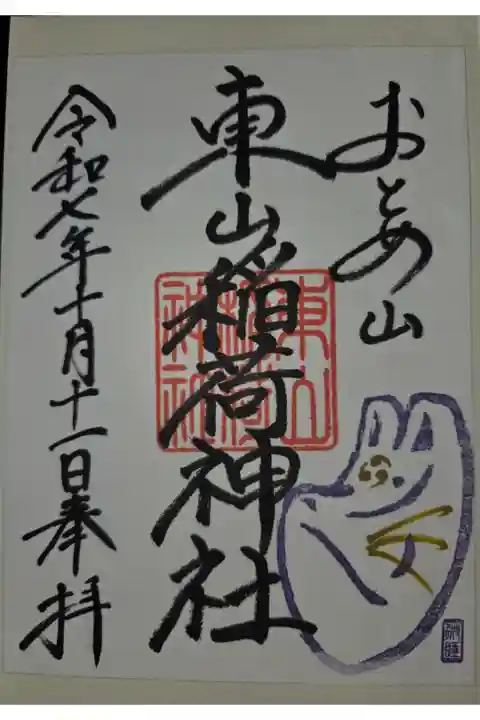 おとめ山
東山稲荷神社
東山
稲荷
神社
令和七年十月十一日奉拝